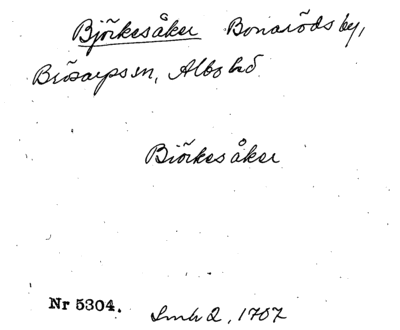 Björkesåker Bonaröds by,
Brösarps sn, Albo hd
Biörkes åker
Nr 5304.
Smh 2, 1707